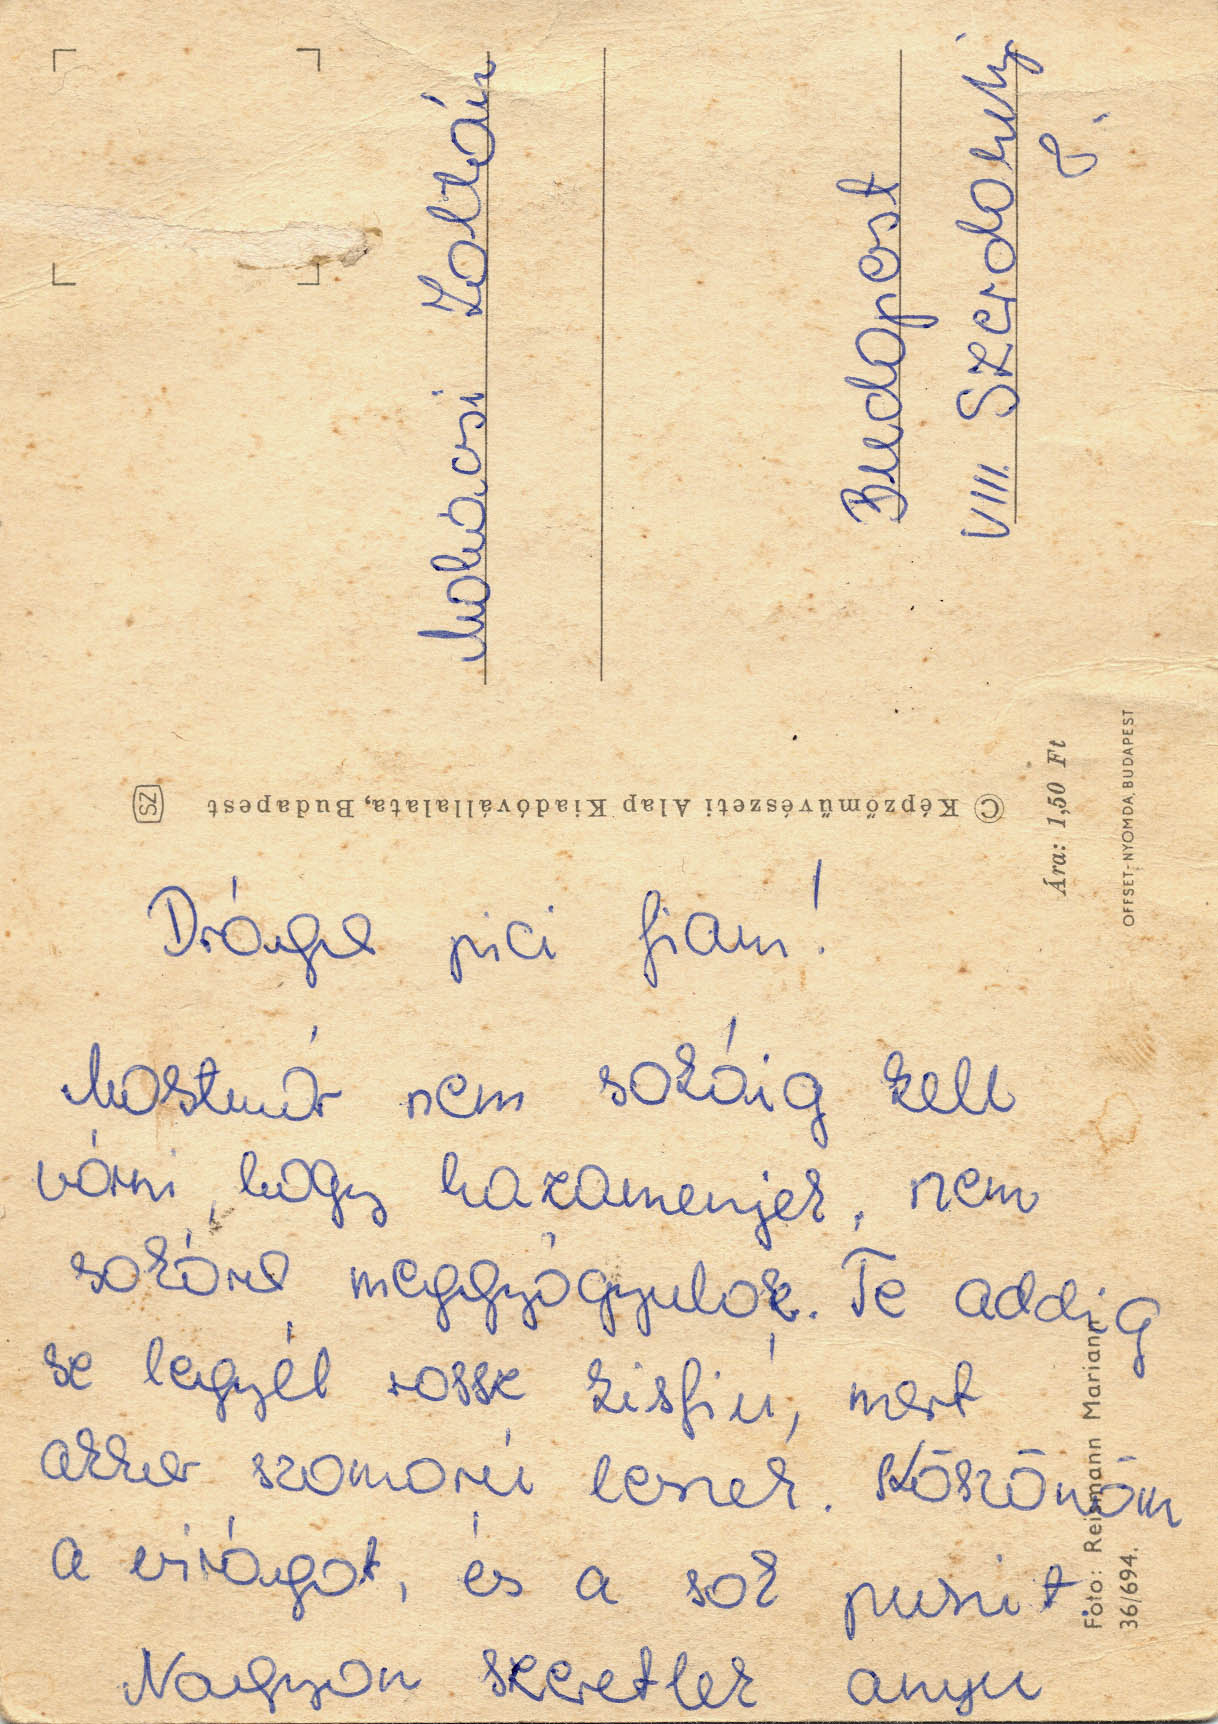 Drága pici fiam!
Mostmár nem sokáig kell
várni, hogy hazamenjek, nem
sokára meggyógyulok. Te addig
se legyél rossz kisfiú, mert
akkor szomorú leszek. Köszönöm
a virágot, és a sok puszit.
Nagyon szeretlek anyu
Zoltán
Budapest
VIII. Szerdahelyi
u.
© Képzőművészeti Alap Kiadóvállalata, Budapest
SZ
Ára: 1,50 Ft
OFFSET-NYOMDA, BUDAPEST
Foto: Reismann Mariann
36/694.